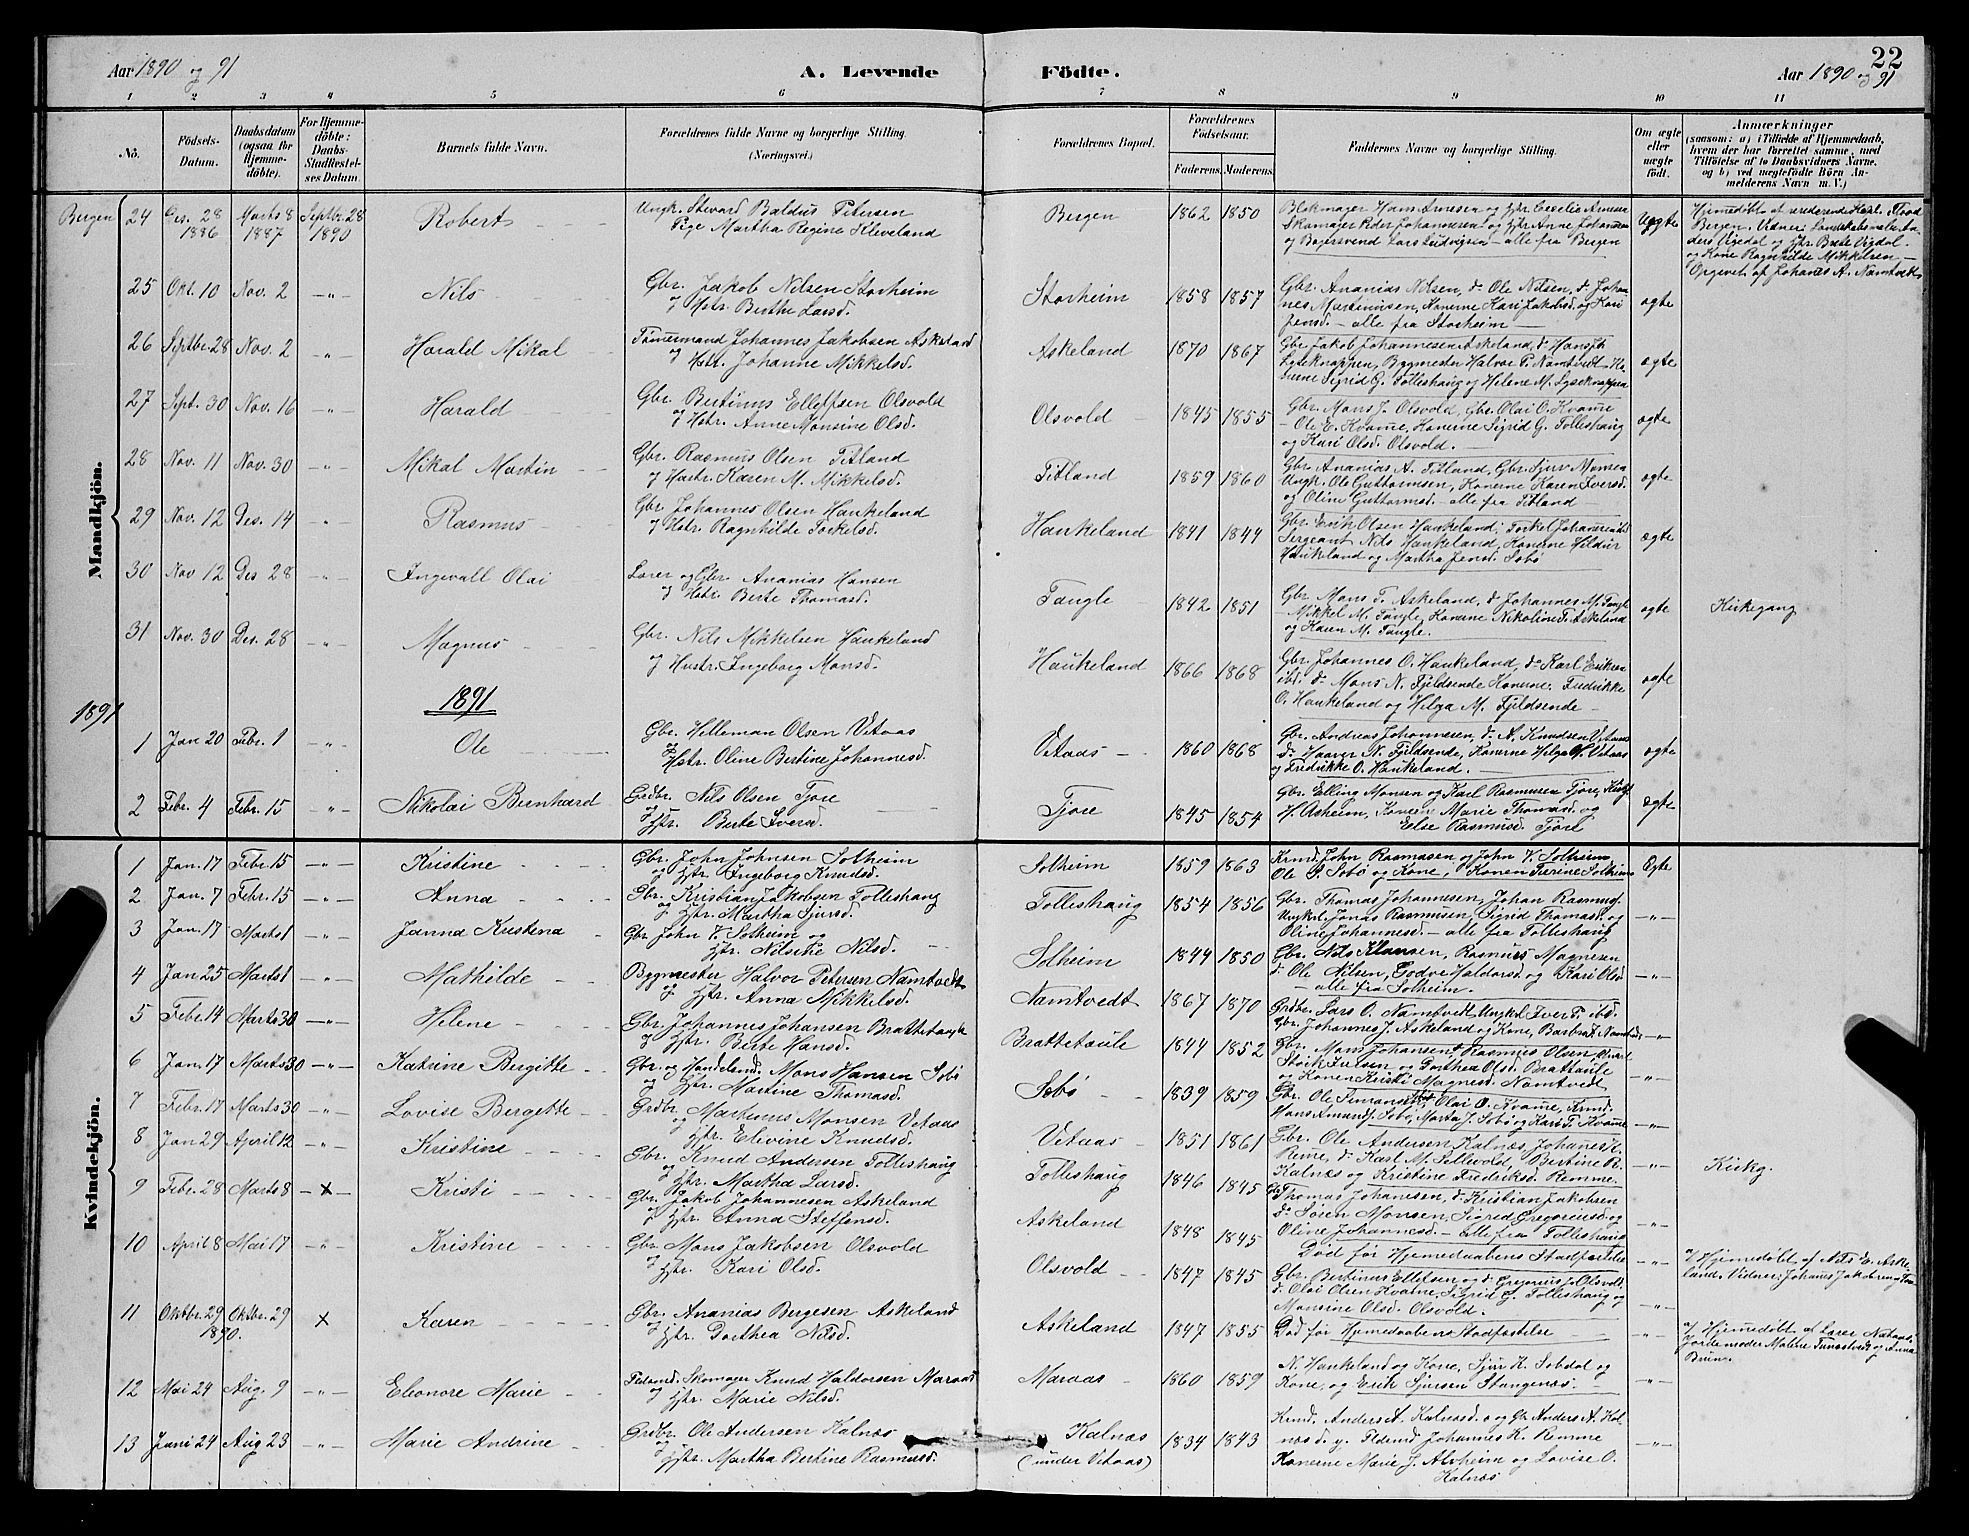 Aar 1890 og 91
A. Levende Födte.
Aar 1890 og 91
22
1 2 3 4 5 6 7 8 9 10 11
No. Födsels-Datum. Daabsdatum (ogsaa for Hjemmedöbte). For Hjemmedöbte: Daabs-Stadfæstelses Datum. Barnets fulde Navn. Forældrenes fulde Navne og borgerlige Stilling. (Næringsvei.) Forældrenes Bopæl. Forældrenes Födselsaar. Faderens. Moderens. Faddernes Navne og borgerlige Stilling. Om ægte eller uægte födt. Anmærkninger
(saasom: a) i Tilfælde af Hjemmedaab, hvem der har forrettet samme, med Tilföielse af to Daabsvidners Navne, og b) ved uægtefödte Börn Anmelderens Navn m. V.)
Mandkjön.
Bergen 24 Des. 28 1886 Marts 8 1887 Septbr. 28 1890 Robert
Ungk. Stevard Baldus Petersen
Pige Martha Regine Kleveland
Bergen 1862 1850
Blokmager Hans Arnesen og Hstr. Cecelie Arnesen
Skomager Peder Johannesen og Hstr Anne Johannesen
og Bagersvend Lars Ludvigsen – alle fra Bergen
Uægte
Bergen. Vidner:
og Kone Ragnhilde Mikkelsen –
Opgivet af Johanes A. Namtvedt
25 Okt. 10 Nov. 2 –"– Nils
Gbr. Jakob Nilsen Storheim
og Hstr. Berthe Larsd.
Storheim 1858 1857
Gbr. Ananias Nilsen, do Ole Nilsen, do Johan-
nes Martinusen, Konerne Kari Jakobsd. og Kari
Jensd. – alle fra Storheim –
ægte
26 Septbr. 28 Nov. 2 –"– Harald Mikal
Tömermand Johannes Jakobsen Askeland
og Hstr. Johanne Mikkelsd.
Askeland 1870 1867
Gbr Jakob Johannesen Askeland, do Hans Th.
Lyseknappen, Bygmester Halvor P. Namtvedt, Ko-
nerne Sigrid G. Tolleshaug og Helene M. Lyseknappen
ægte
27 Sept. 30 Nov. 16 –"– Harald
Gbr. Bertinus Elleffsen Olsvold
og Hstr. Anne Monsine Olsd.
Olsvold 1845 1855
Gbr. Mons J. Olsvold, Gbr. Olai O. Kvame
– Ole E. Kvame, Konerne Sigrid G. Tolleshaug
og Kari Olsd. Olsvold.
ægte
28 Nov. 11 Nov. 30 –"– Mikal Martin
Gbr. Rasmus Olsen Titland
og Hustr. Karen M. Mikkelsd.
Titland 1859 1860
Gbr Ananias A. Titland, Gbr. Sjur Monsen
Ungk. Ole Guttormsen, Konerne Karen Iversd.
og Oline Guttormsd. – alle fra Titland
ægte
29 Nov. 12 Des. 14 " Rasmus
Gbr. Johannes Olsen Haukeland
og Hstr. Ragnhilde Torkelsd.
Haukeland 1841 1844
Gbr. Erik Olsen Haukeland, Torkel Johannesen ibd
Sergeant Nils Haukeland, Konerne Hildur
Haukeland og Martha Jensd. Söbö
ægte
30 Nov 12 Des 28 –"– Ingevall Olai
Lærer og Gbr. Ananias Hansen
og Hstr. Berte Thomasd.
Tangle 1842 1851
Gbr Mons T. Askeland, do Johannes M. Tangle
– Mikkel M. Tangle, Konerne Nikoline T. Askeland
og Karen M. Tangle.
ægte
Kirkegang
31 Nov. 30 Des. 28 –"– Magnus
Gbr. Nils Mikkelsen Haukeland
og Hustr. Ingeborg Monsd.
Haukeland 1866 1868
Gbr. Johannes O. Haukeland, do Karl Eriksen
ibd. do Mons N. Fjeldsende Konerne: Fredrikke
O. Haukeland og Helga M. Fjeldsende –
ægte
1891
1891
1 Jan 20 Febr. 1 –"– Ole
Gbr. Hilleman Olsen Vetaas
og Hstr. Oline Bertine Johannesd.
Vetaas – 1860 1868
Gbr. Andreas Johannesen do A. Knudsen Vetaas
do Haaver N. Fjeldsende, Konerne Helga H. Vetaas
og Fredrikke O. Haukeland.
ægte
2 Febr. 4 Febr. 15 –"– Nikolai Bernhard
Grdbr. Nils Olsen Tjore
og Hstr. Berte Iversd.
Tjore 1845 1854
Gbr Elling Monsen og Karl Rasmusen Tjore,
H. Asheim, Konen Marie Thomasd. og
Else Rasmusd. Tjore
Ægte
Kvindekjön.
1 Jan. 17 Febr. 15 –"– Kristine
Gbr. John Johnsen Solheim
og Hstr. Ingeborg Knudsd.
Solheim 1859 1863
Krmd. John Rasmusen og John V. Solheim
Ole S. Söbö og Kone, Konen Severine Solheim
Ægte
2 Jan. 7 Febr. 15 –"– Anna
Gbr. Kristian Jakobsen Tolleshaug
og Hstr. Martha Sjursd.
Tolleshaug 1854 1856
Gbr. Thomas Johannesen, Johan Rasmusf.
Ungkl. Jonas Rasmusen, Sigrid Thomasd. og
Oline Johannesd. – alle fra Tolleshaug
–"–
3 Jan. 17 Marts 1 –"– Janna Kristena
Gbr John V. Solheim og
Hstr. Nilsche Nilsd.
Solheim 1844 1850
Gbr. Nils Klausen, Rasmus Magnesen
do Ole Nilsen, Godve Haldorsd. og Kari Olsd
– alle fra Solheim.
–"–
4 Jan 25 Marts 1 –"– Mathilde
Bygmester Halvor Petersen Namtvedt
og Hstr. Anna Mikkelsd.
Namtvedt 1867 1870
Grdbr. Lars O. Namtvedt Ungkl Iver P. ibd.
Gbr. Johannes J. Askeland og Kone, Barbra L. Namtvedt
–"–
5 Febr. 14 Marts 30 –"– Helene
Gbr. Johannes Johansen Brattetaule
og Hstr. Berte Hansd.
Brattetaule 1844 1852
Gbr. Mons Johansen, Rasmus Olsen,
og Dorthea Olsd. Brattaule
og Konen Kristi Magnesd. Namtvedt
–"–
6 Jan. 17 Marts 30 –"– Katrine Bergitte
Gbr. og Handelsmd. Mons Hansen Söbö
og Hstr. Martine Thomasd.
Söbö 1839 1859
Gbr. Ole Simonsen Söbö, Olai O. Kvame, Krmd.
Hans Amundf. Söbö, Marta J. Söbö og Kari T. Kvame
–"–
7 Febr. 17 Marts 30 –"– Lovise Bergette
Grdbr Martinus Monsen Vetaas
og Hstr. Elevine Knudsd.
Vetaas 1851 1861
Gbr. Ole Andersen Kalnæs, Johanes K.
Reme, do Karl M. Sellevold, Bertine R.
Kalnæs og Kristine Fredriksd. Hemme.
–"–
Kirkg.
8 Jan 29 April 12 –"– Kristine
Gbr. Knud Andersen Tolleshaug
og Hstr. Martha Larsd.
Tolleshaug 1846 1845
Gbr Thomas Johannesen, do Kristian Jakobsen
do Sören Monsen, Sigrid Gregoriusd. og
Oline Johannesd. – alle fra Tolleshaug
–"–
9 Febr. 28 Marts 8 –x– Kristi
Gbr. Jakob Johannesen Askeland
og Hstr. Anna Steffensd.
Askeland 1848 1845
Död för Hjemedaabens Stadfæstelse
–"–
a/ Hjemedöbt af Nils E. Aske-
land. Vidner: Johans Jakobsen og
10 April 8 Mai 17 –"– Kristine
Gbr. Mons Jakobsen Olsvold
og Hstr. Kari Olsd.
Olsvold 1847 1845
Gbr. Bertinus Ellefsen og do Gregorius J. Olsvold
do Olai Olsen Kvame, Sigrid G. Tolleshaug og
Monsine Olsd. Olsvold.
–"–
11 Oktbr. 29 1890. Oktbr. 29 x Karen
Gbr. Ananias Bergesen Askeland
og Hstr. Dorthea Nilsd.
Askeland 1847 1855
Död för Hjemedaabens Stadfæstelse
–"–
a/ Hjemedöbt af Lærer Nataas.
Jordemoder Malene Tunestvedt og Anna
Bruna.
12 Mai 24 Aug. 9 –"– Eleonore Marie
Skomager Knud Haldorsen Maraas
og Hstr. Marie Nilsd.
Maraas 1860 1859
N. Haukeland og Kone, Sjur K. Sobdal og
Kone, og Erik Sjursen Stangenæs. –
–"–
13 Juni 24 Aug 23 –"– Marie Andrine
Grdbr. Ole Andersen Kalnæs
og Hstr. Martha Bertine Rasmusd.
Kalnæs
(under Vetaas)
1834 1843
Krmd. Anders A. Kalnæs d. o og Gbr Anders A. Kal-
næs d. y. Johannes K. Remme
Konerne Marie J. Alvheim og Lovise O.
Kalnæs
–"–